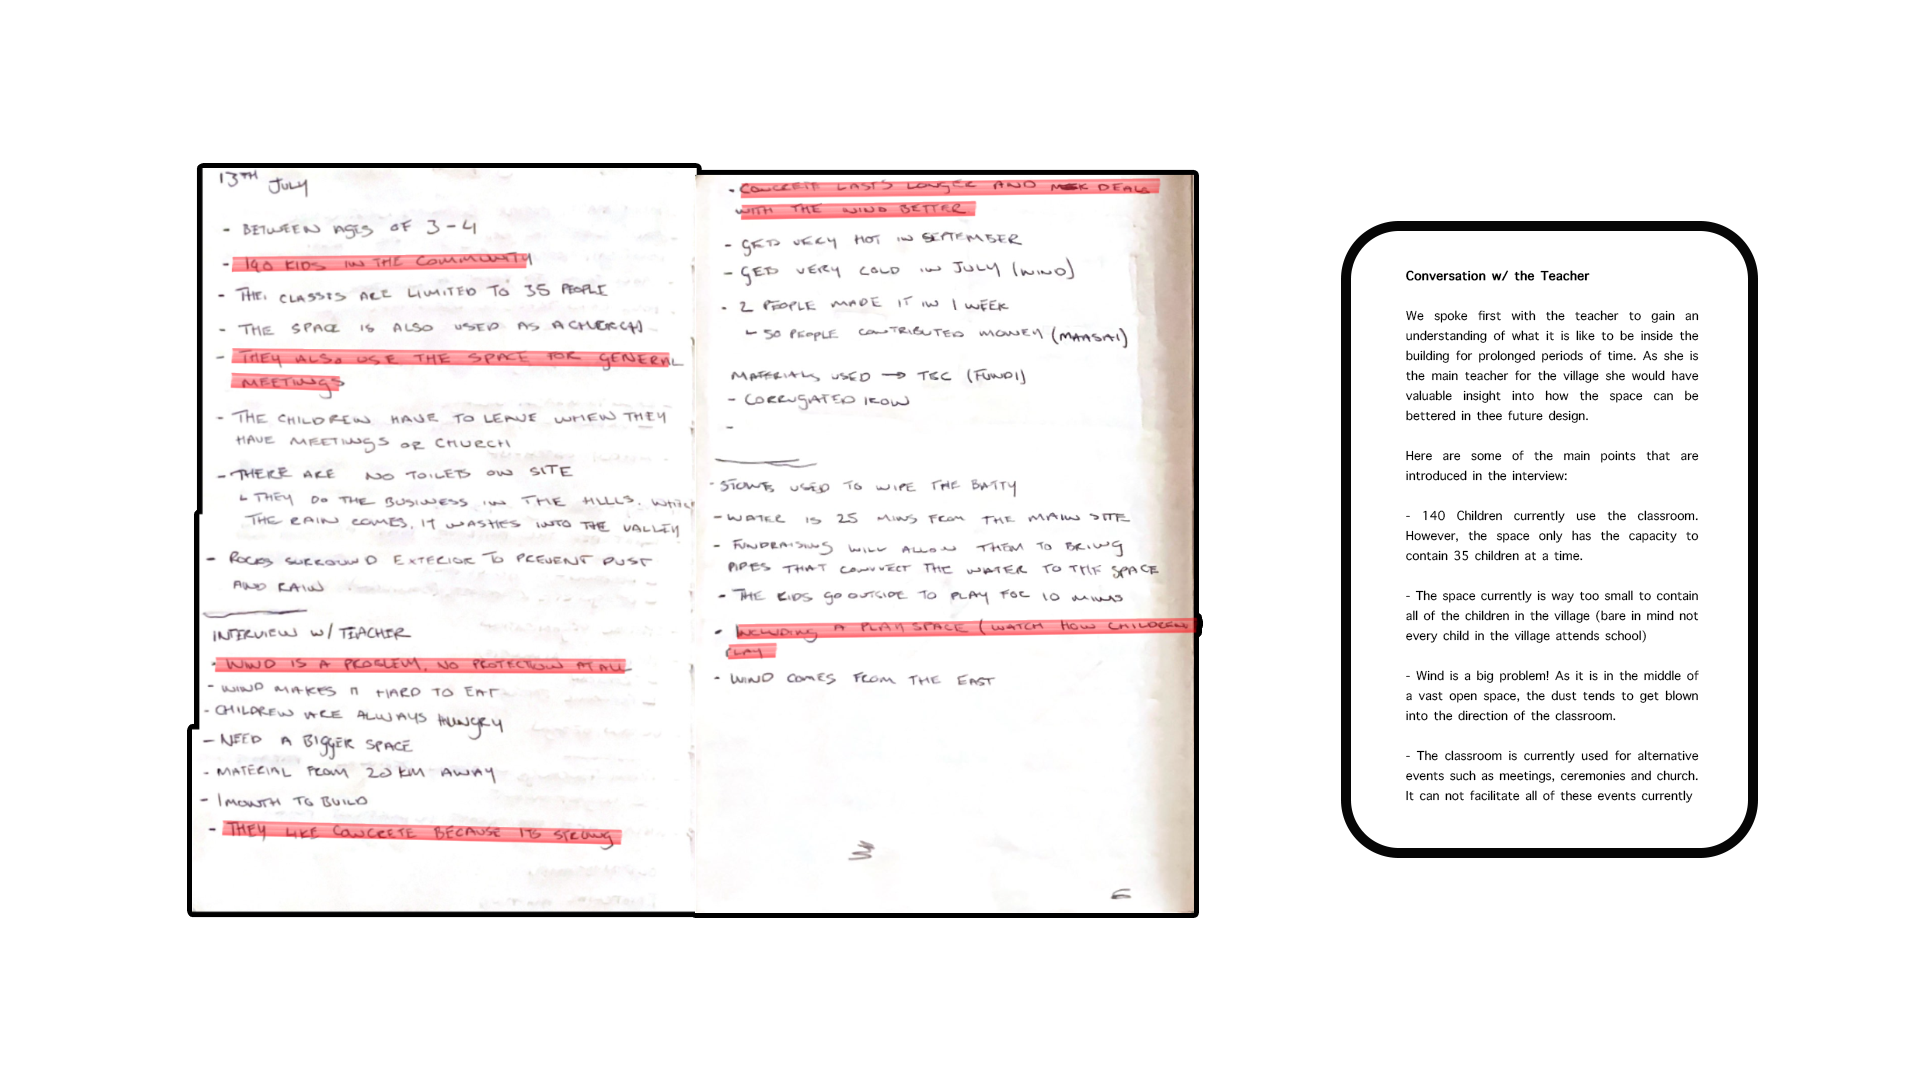 13TH JULY
- BETWEEN AGES OF 3-4
- 190 KIDS IN THE COMMUNITY
- THE CLASSES ARE LIMITED TO 35 PEOPLE
- THE SPACE IS ALSO USED AS A CHURCH
- THEY ALSO USE THE SPACE FOR GENERAL
MEETINGS
- THE CHILDREN HAVE TO LEAVE WHEN THEY
HAVE MEETINGS OR CHURCH
- THERE ARE NO TOILETS ON SITE
↳ THEY DO THE BUSINESS IN THE HILLS. WHEN
THE RAIN COMES, IT WASHES INTO THE VALLEY
- ROCKS SURROUND EXTERIOR TO PREVENT DUST
AND RAIN
INTERVIEW W/ TEACHER
- WIND IS A PROBLEM, NO PROTECTION AT ALL
- WIND MAKES IT HARD TO EAT
- CHILDREN ARE ALWAYS HUNGRY
- NEED A BIGGER SPACE
- MATERIAL FROM 20 KM AWAY
- 1 MONTH TO BUILD
- THEY LIKE CONCRETE BECAUSE ITS STRONG
- CONCRETE LASTS LONGER AND DEALS
WITH THE WIND BETTER
- GETS VERY HOT IN SEPTEMBER
- GETS VERY COLD IN JULY (WIND)
- 2 PEOPLE MADE IT IN 1 WEEK
↳ 50 PEOPLE CONTRIBUTED MONEY (MAASAI)
MATERIALS USED → TBC (FUNDI)
- CORRUGATED IRON
-
- STONES USED TO WIPE THE BATTY
- WATER IS 25 MINS FROM THE MAIN SITE
- FUNDRAISING WILL ALLOW THEM TO BRING
PIPES THAT CONNECT THE WATER TO THE SPACE
- THE KIDS GO OUTSIDE TO PLAY FOR 10 MINS
- INCLUDING A PLAY SPACE (WATCH HOW CHILDREN
PLAY)
- WIND COMES FROM THE EAST
6
Conversation w/ the Teacher
We spoke first with the teacher to gain an
understanding of what it is like to be inside the
building for prolonged periods of time. As she is
the main teacher for the village she would have
valuable insight into how the space can be
bettered in thee future design.
Here are some of the main points that are
introduced in the interview:
- 140 Children currently use the classroom.
However, the space only has the capacity to
contain 35 children at a time.
- The space currently is way too small to contain
all of the children in the village (bare in mind not
every child in the village attends school)
- Wind is a big problem! As it is in the middle of
a vast open space, the dust tends to get blown
into the direction of the classroom.
- The classroom is currently used for alternative
events such as meetings, ceremonies and church.
It can not facilitate all of these events currently